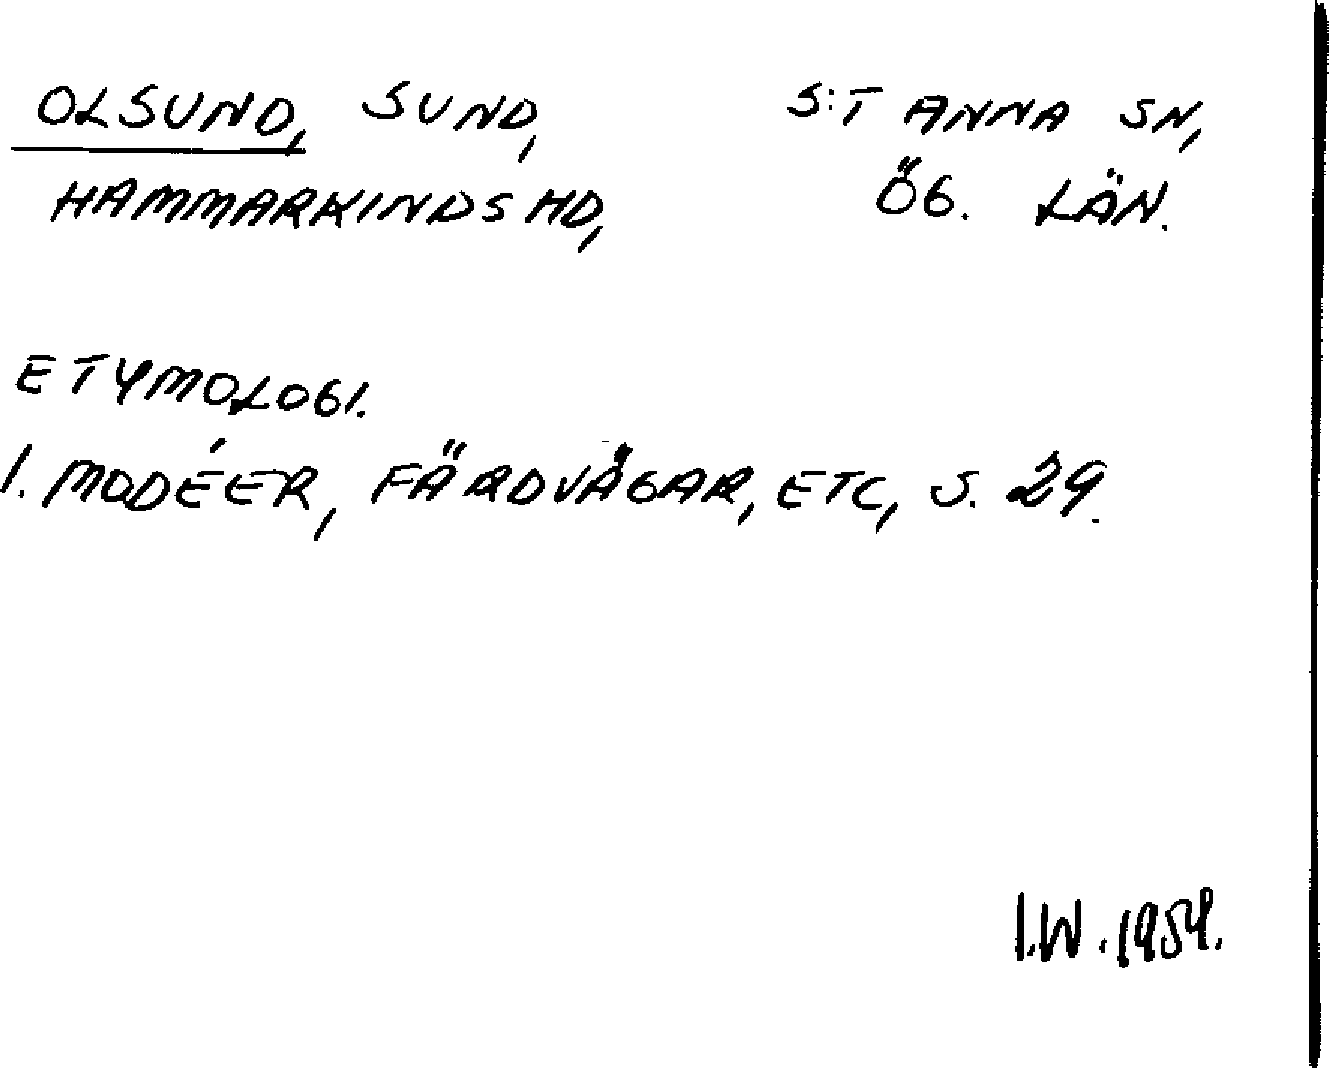 OLSUND, SUND, S:T ANNA SN,
HAMMARKINDS HD, ÖG. LÄN.
ETYMOLOGI.
I. MODÉER, FÄRDVÄGAR, ETC, S. 29.
I.W. 1954.